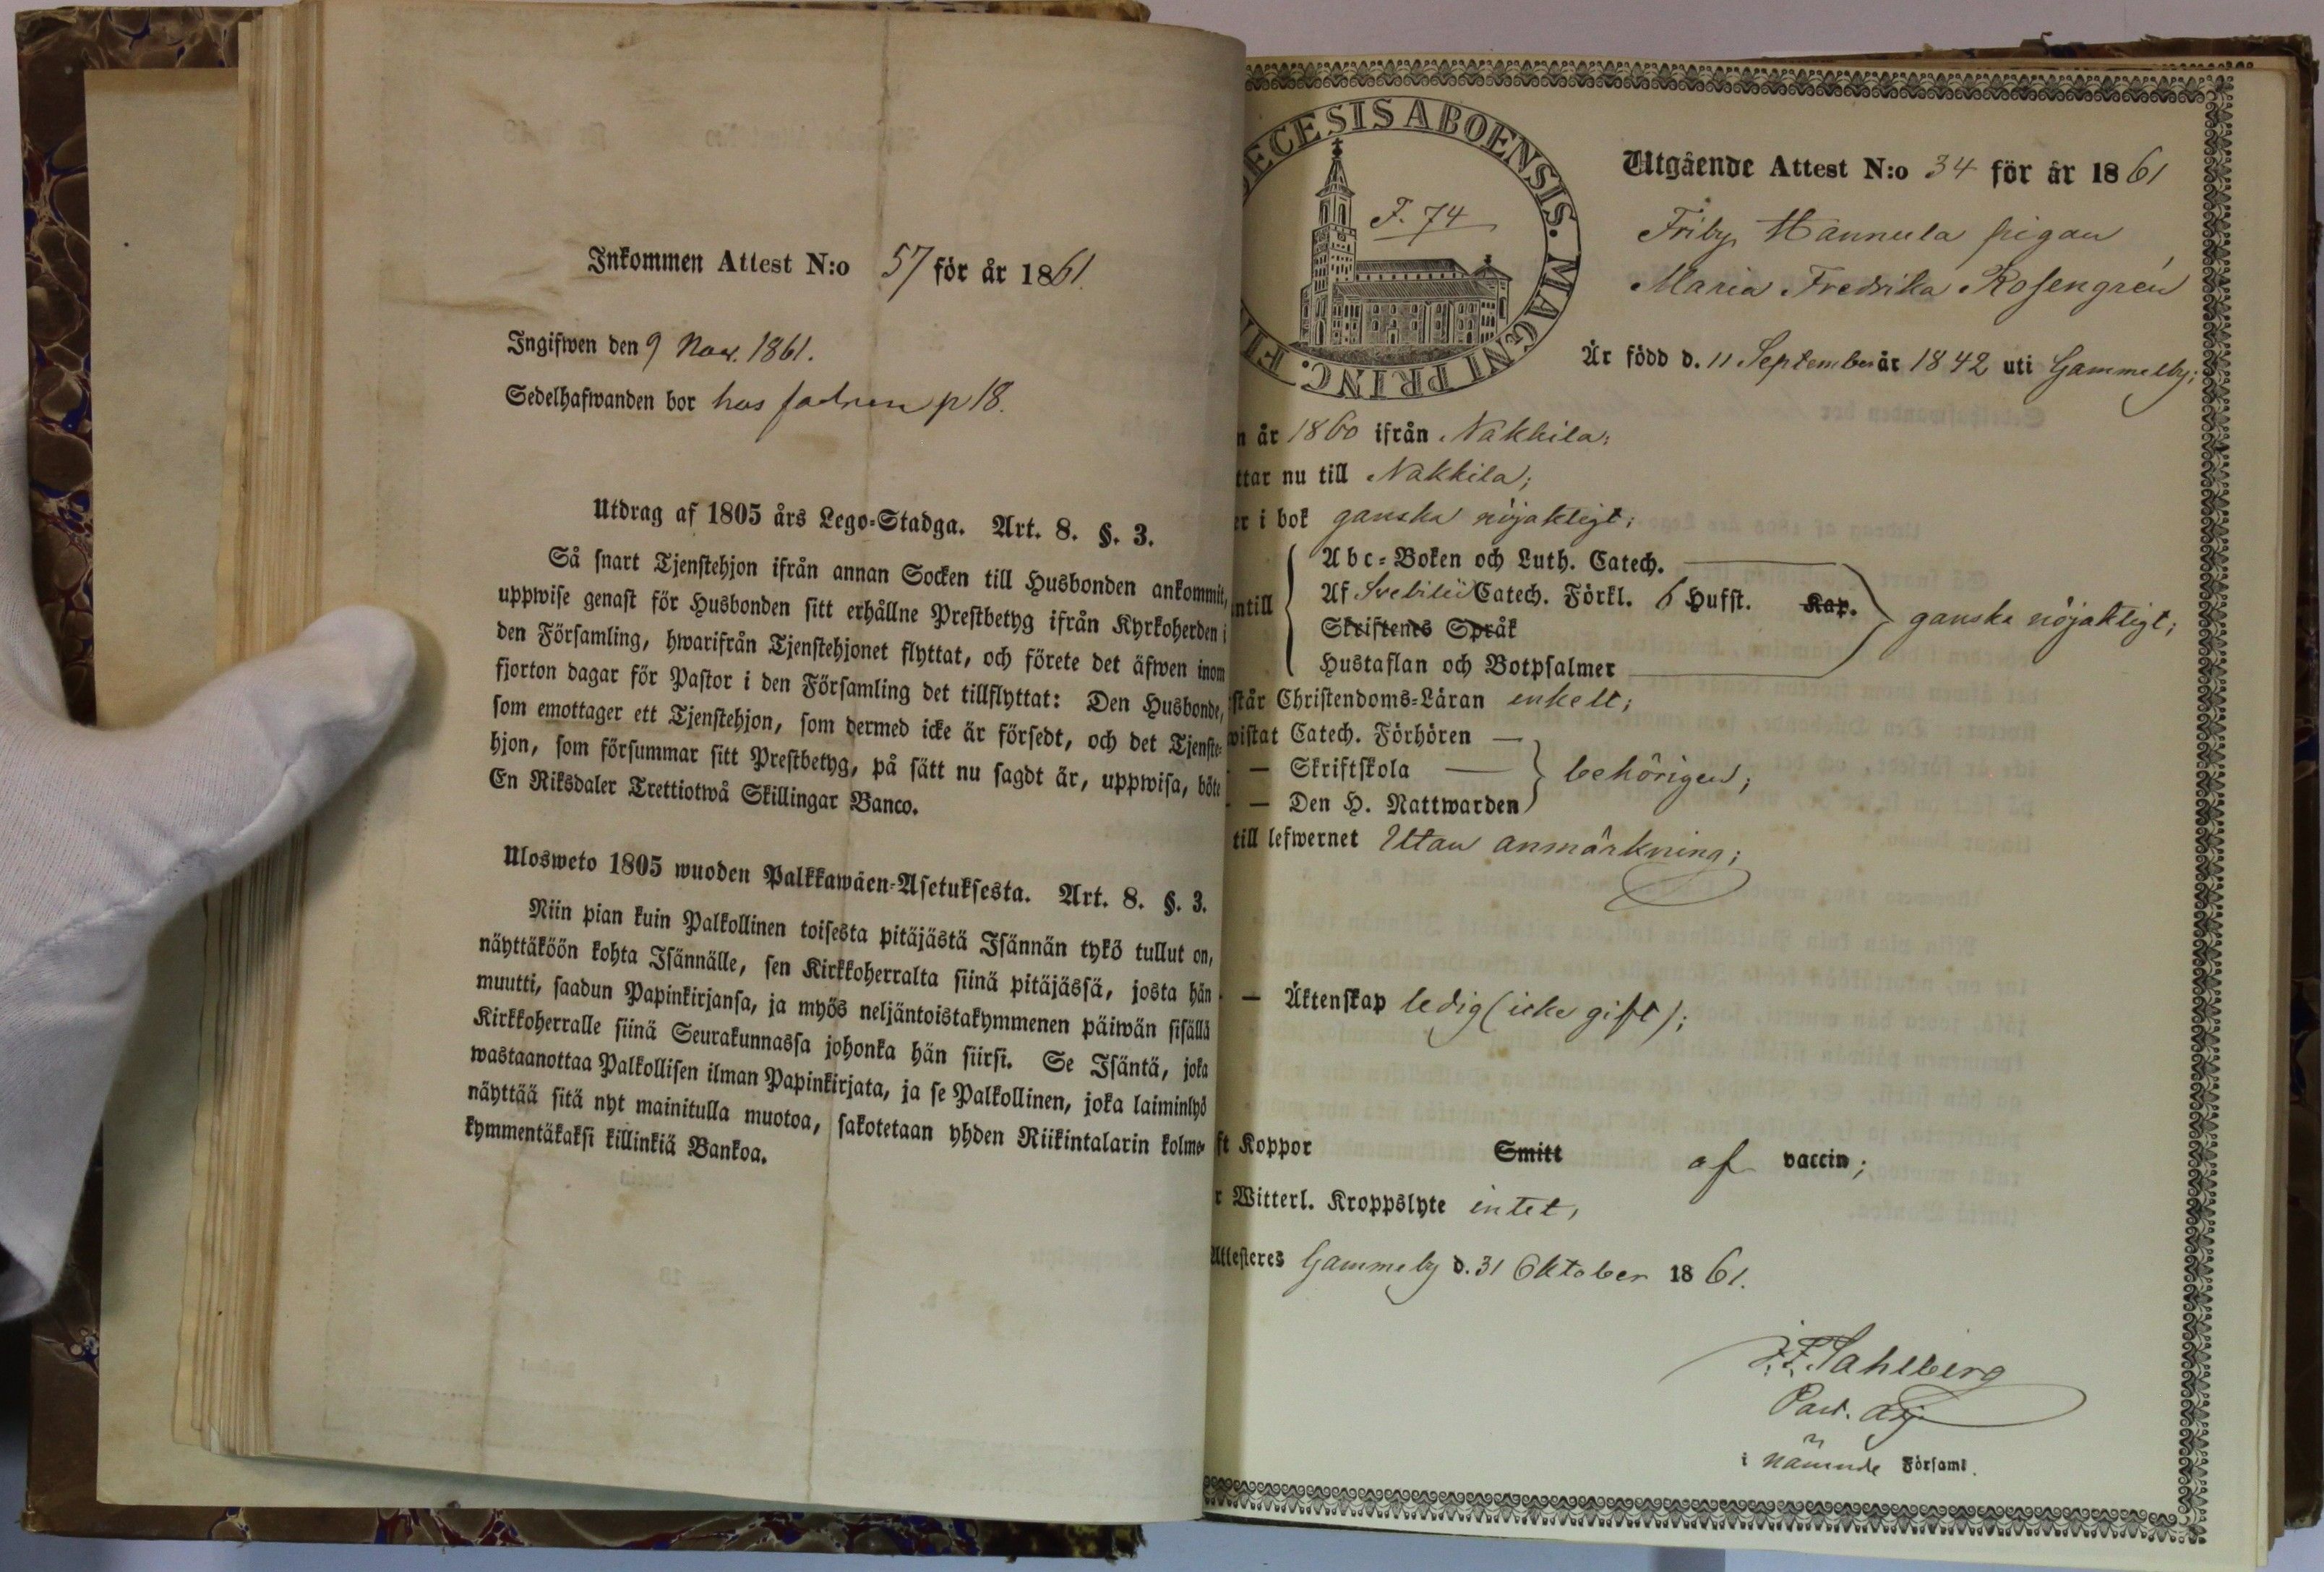 Inkommen Attest N:o 57 för år 1861.
Ingifwen den 9 Nov. 1861.
Sedelhafwanden bor hos fadren p 18.
Utdrag af 1805 års Lego-Stadga. Art. 8. §. 3.
Så snart Tjenstehjon ifrån annan Socken till Husbonden ankommit,
uppwise genast för Husbonden sitt erhållne Prestbetyg ifrån Kyrkoherden i
den Församling, hwarifrån Tjenstehjonet flyttat, och förete det äfwen inom
fjorton dagar för Pastor i den Församling det tillflyttat: Den Husbonde,
som emottager ett Tjenstehjon, som dermed icke är försedt, och det Tjenste-
hjon, som försummar sitt Prestbetyg, på sätt nu sagdt är, uppwisa, böte
En Riksdaler Trettiotwå Skillingar Banco.
Ulosweto 1805 wuoden Palkkawäen-Asetuksesta. Art. 8. §. 3.
Niin pian kuin Palkollinen toisesta pitäjästä Isännän tykö tullut on,
näyttäköön kohta Isännälle, sen Kirkkoherralta siinä pitäjässä, josta hän
muutti, saadun Papinkirjansa, ja myös neljäntoistakymmenen päiwän sisällä
Kirkkoherralle siinä Seurakunnassa johonka hän siirsi. Se Isäntä, joka
wastaanottaa Palkollisen ilman Papinkirjata, ja se Palkollinen, joka laiminlyö
näyttää sitä nyt mainitulla muotoa, sakotetaan yhden Riikintalarin kolme-
kymmentäkaksi killinkiä Bankoa.
ECESIS ABOENSIS. MAGNI PRINC. FI
F. 74
Utgående Attest N:o 34 för år 1861
Friby Hannula pigan
Maria Fredrika Rosengrén
Är född d. 11 September år 1842 uti Gammelby;
n år 1860 ifrån Nakkila;
ttar nu till Nakkila;
er i bok ganska nöjaktigt;
Abc-Boken och Luth. Catech.
ntill Af Svebilii Catech. Förkl. 6 Hufst. Kap. ganska nöjaktigt;
Skriftenes Språk
Hustaflan och Botpsalmer
står Christendoms-Läran enkelt;
wistat Catech. Förhören —
— Skriftskola — behörigen;
— Den H. Nattwarden
till lefwernet Utan anmärkning;
— Äktenskap ledig (icke gift);
ft Koppor Smitt af vaccin;
r Witterl. Kroppslyte intet,
Attesteres Gammelby d. 31 Oktober 1861.
J. F. Sahlberg
Past. adj.
i nämnde Församl.